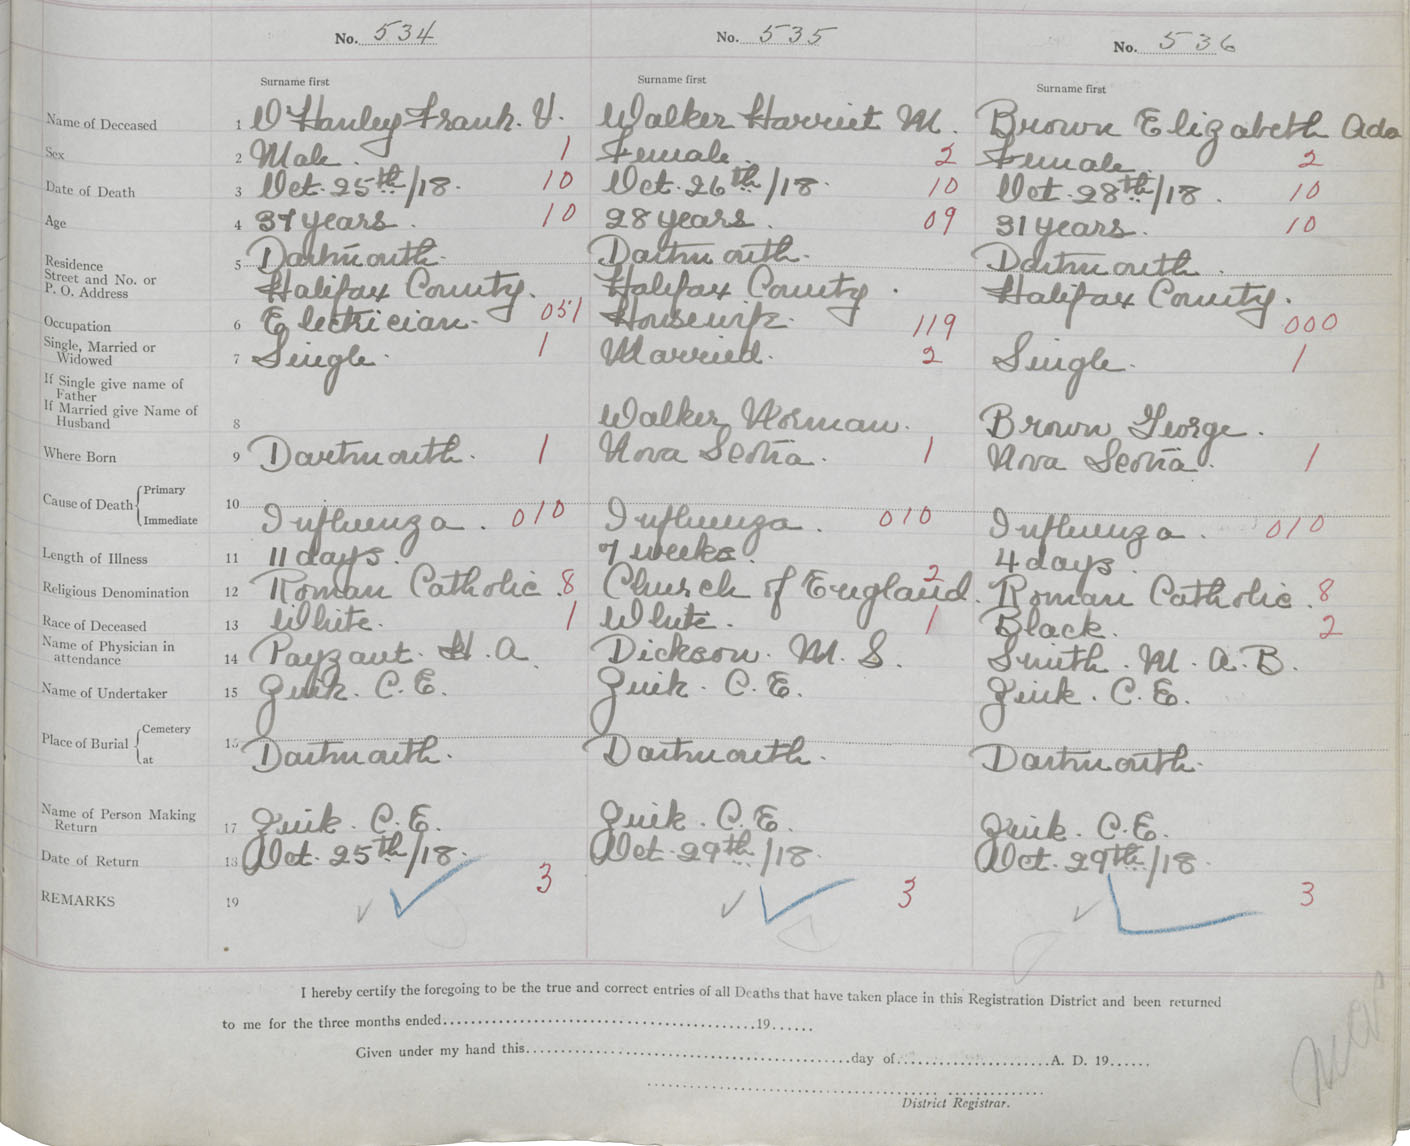 No. 534 No. 535 No. 536
Surname first Surname first Surname first
Name of Deceased 1 O'Hanley Frank. V. Walker Harriet M. Brown Elizabeth Ada
Sex 2 Male. 1 Female. 2 Female. 2
Date of Death 3 Oct. 25th/18. 10 Oct. 26th/18. 10 Oct. 28th/18. 10
Age 4 37 years. 10 28 years. 09 31 years. 10
Residence 5 Dartmouth. Dartmouth. Dartmouth.
Street and No. or
P. O. Address Halifax County. Halifax County. Halifax County.
Occupation 6 Electrician. 051 Housewife. 119 000
Single, Married or
Widowed 7 Single. 1 Married. 2 Single. 1
If Single give name of
Father
If Married give Name of
Husband 8 Walker Norman. Brown George.
Where Born 9 Dartmouth. 1 Nova Scotia. 1 Nova Scotia. 1
Cause of Death Primary 10
Immediate Influenza. 010 Influenza. 010 Influenza. 010
Length of Illness 11 11 days. 7 weeks. 4 days.
Religious Denomination 12 Roman Catholic. 8 Church of England. 2 Roman Catholic. 8
Race of Deceased 13 White. 1 White. 1 Black. 2
Name of Physician in
attendance 14 Payzant. H. A. Dickson. M. S. Smith. M. A. B.
Name of Undertaker 15 Zink. C. E. Zink. C. E. Zink. C. E.
Place of Burial Cemetery
at Dartmouth. Dartmouth. Dartmouth.
Name of Person Making
Return 17 Zink. C. E. Zink. C. E. Zink. C. E.
Date of Return 18 Oct. 25th/18. Oct. 29th/18. Oct. 29th/18.
REMARKS 19 3 3 3
I hereby certify the foregoing to be the true and correct entries of all Deaths that have taken place in this Registration District and been returned
to me for the three months ended 19
Given under my hand this day of A. D. 19
District Registrar.